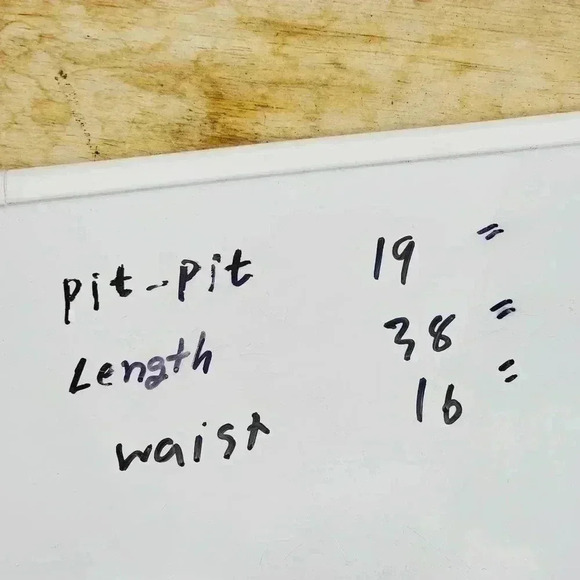 pit-pit 19"
Length 38"
waist 16"